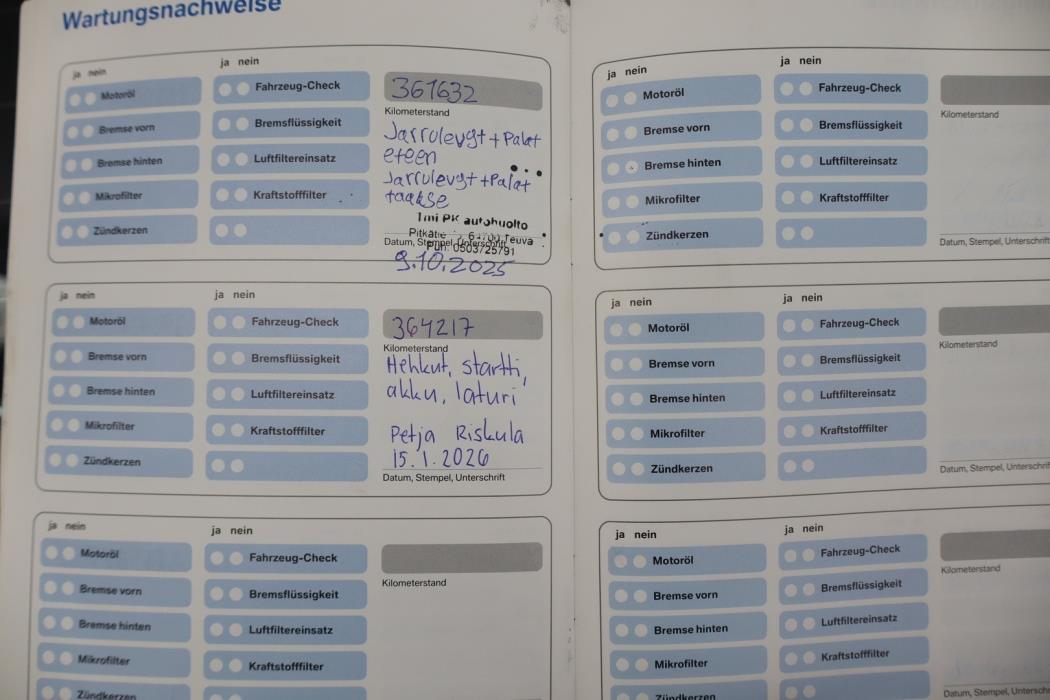 Wartungsnachweise
ja nein
ja nein
Motoröl
Fahrzeug-Check
361632
Bremse vorn
Bremsflüssigkeit
Kilometerstand
Bremse hinten
Luftfiltereinsatz
Jarrulevyt + Palat
eteen
Mikrofilter
Kraftstofffilter
Jarrulevyt + Palat
taakse
Zündkerzen
Tmi PK autohuolto
Teuva
Datum, Stempel, Unterschrift
Puh. 0503725791
9.10.2025
ja nein
ja nein
Motoröl
Fahrzeug-Check
364217
Bremse vorn
Bremsflüssigkeit
Kilometerstand
Bremse hinten
Luftfiltereinsatz
Hehkut, startti,
akku, laturi
Mikrofilter
Kraftstofffilter
Petja Riskula
Zündkerzen
15.1.2026
Datum, Stempel, Unterschrift
ja nein
ja nein
Motoröl
Fahrzeug-Check
Bremse vorn
Bremsflüssigkeit
Kilometerstand
Bremse hinten
Luftfiltereinsatz
Mikrofilter
Kraftstofffilter
Zündkerzen
ja nein
ja nein
Motoröl
Fahrzeug-Check
Bremse vorn
Bremsflüssigkeit
Kilometerstand
Bremse hinten
Luftfiltereinsatz
Mikrofilter
Kraftstofffilter
Zündkerzen
Datum, Stempel, Unterschrift
ja nein
ja nein
Motoröl
Fahrzeug-Check
Bremse vorn
Bremsflüssigkeit
Kilometerstand
Bremse hinten
Luftfiltereinsatz
Mikrofilter
Kraftstofffilter
Zündkerzen
Datum, Stempel, Unterschrift
ja nein
ja nein
Motoröl
Fahrzeug-Check
Bremse vorn
Bremsflüssigkeit
Kilometerstand
Bremse hinten
Luftfiltereinsatz
Mikrofilter
Kraftstofffilter
Zündkerzen
Datum, Stempel, Unterschrift